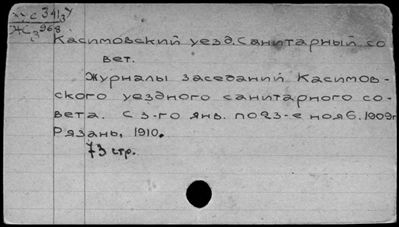 341/3
ЖС3 968
Касимовский уезд. Санитарный со
вет.
Журналы заседаний Касимов-
ского уездного санитарного со-
вета. С 3-го янв. по 23-е нояб. 1909г
Рязань, 1910.
73 стр.